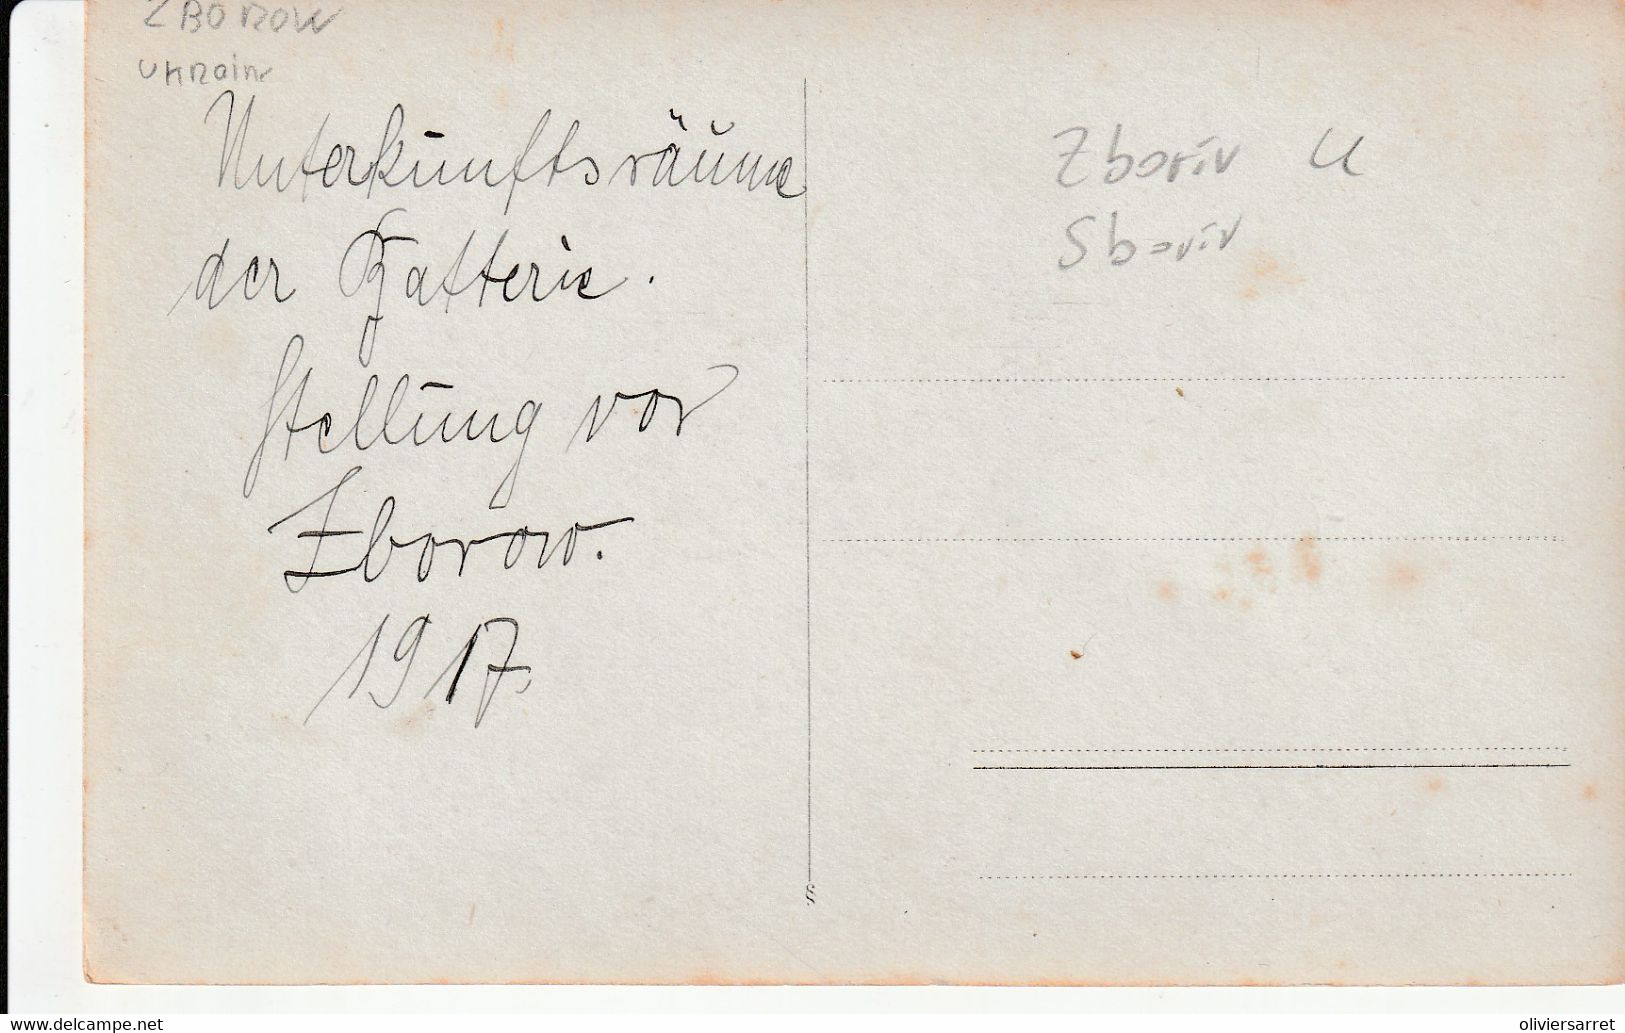 ZBOROW
Ukraine
Unterkunftsräume
der Batterie.
Stellung vor
Zborow.
1917.
Zboriv U
Sboriv
S.
www.delcampe.net
oliviersarret